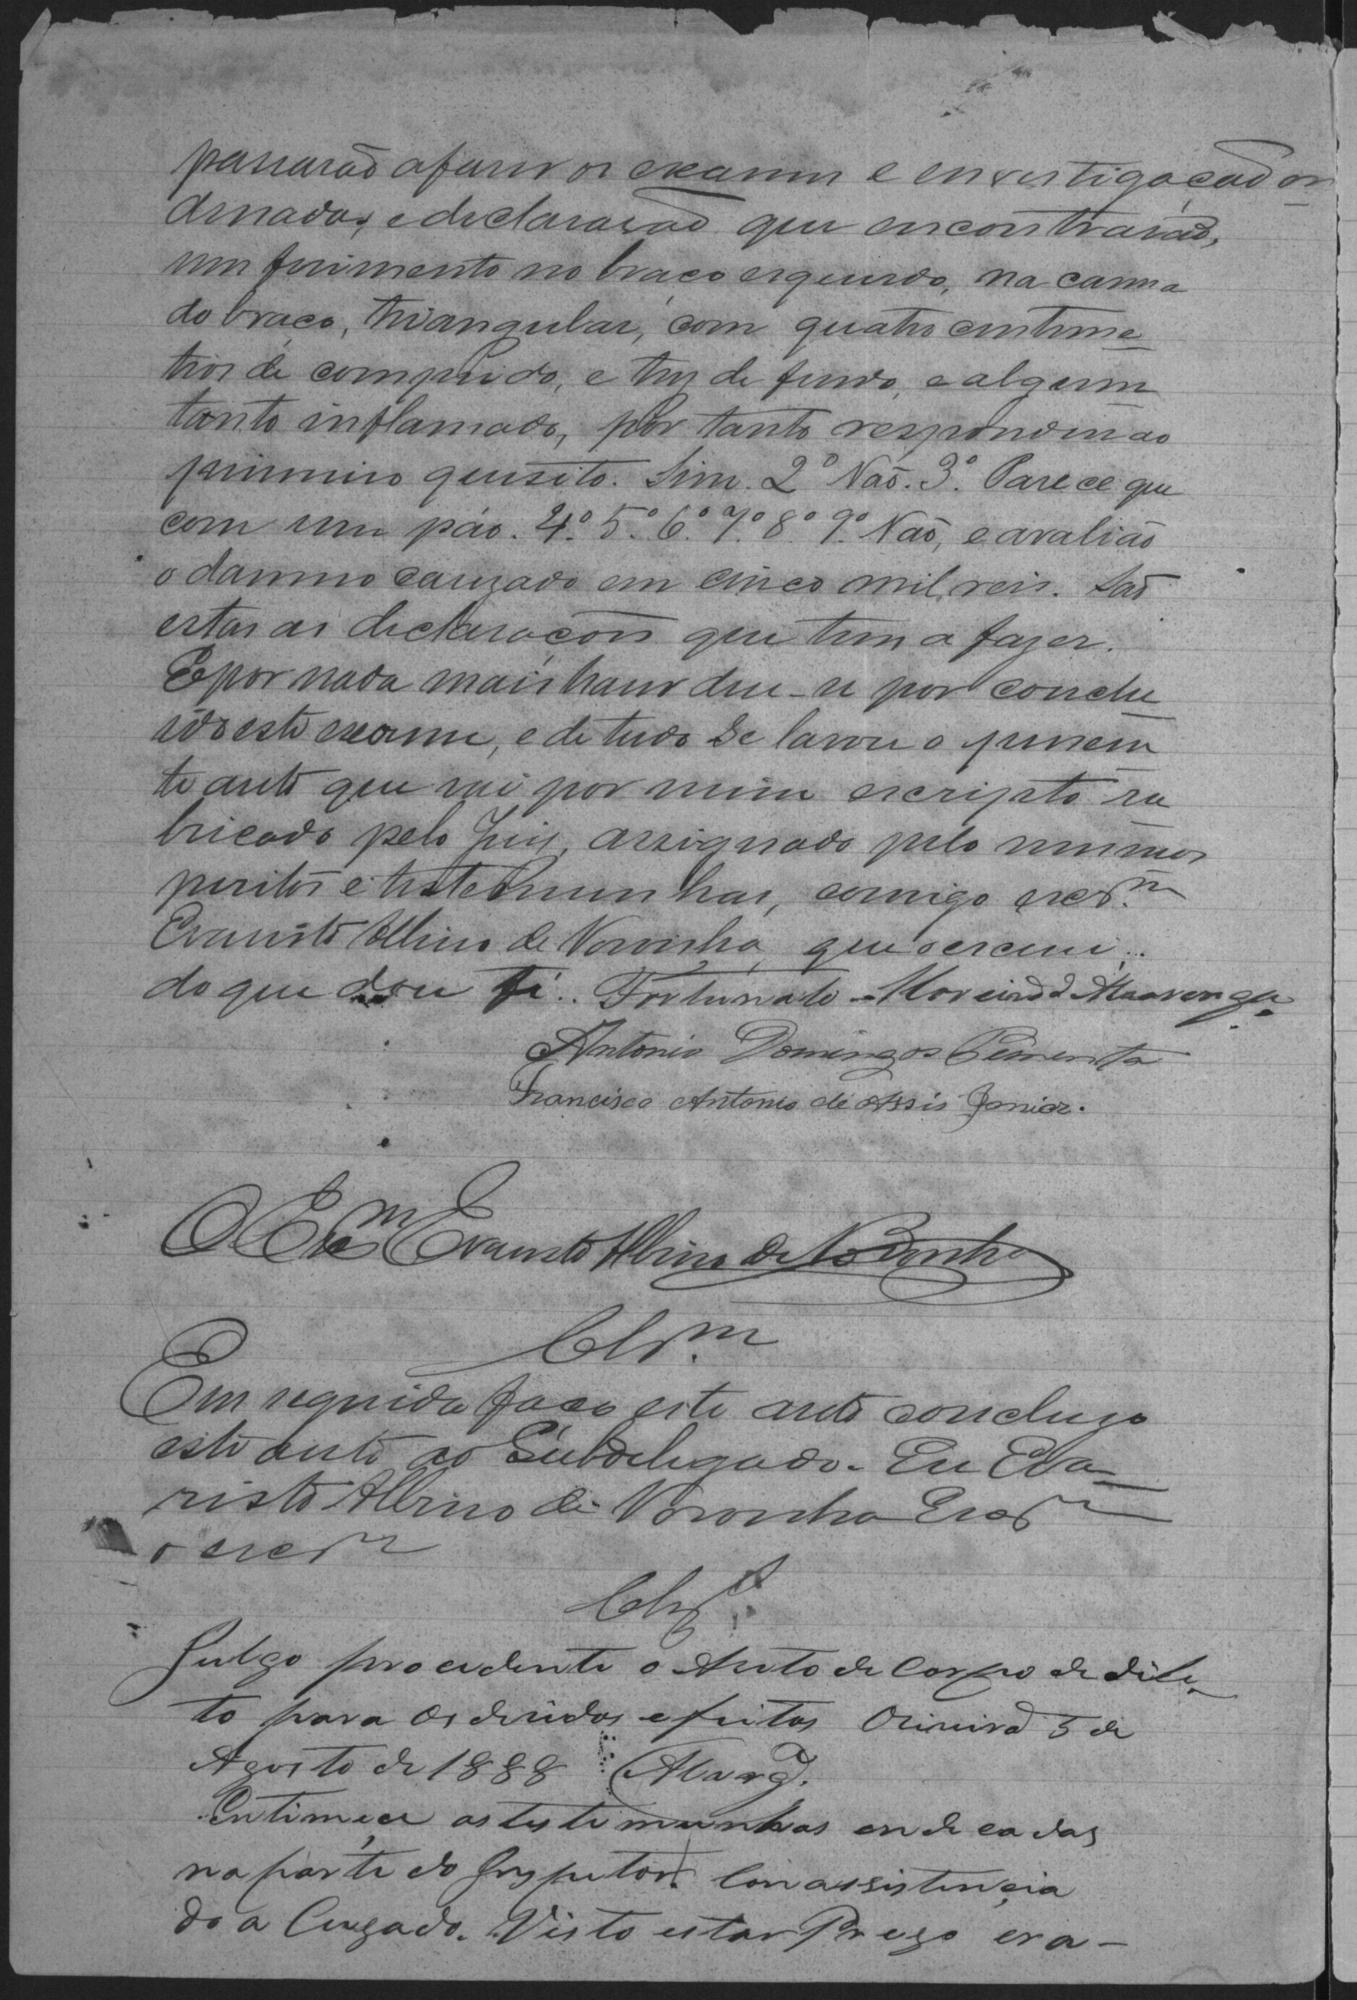 passarão a faser os exames e envestigação or
denadas, e declararão que encontrarão,
um ferimento no braço esquerdo, na canna
do braço, triangular, com quatro centime
tros de comprido, e tres de fundo, e algum
tanto inflamado, por tanto respondem ao
primeiro quesito. Sim. 2º Não. 3º. Parece que
com um páo. 4º. 5º 6º. 7º. 8º 9º. Não, e avalião
o damno cauzado em cinco mil reis. São
estas as declaraçoes que tem a fazer.
E por nada mais haver deu-se por conclu
ido este exame, e de tudo se lavrou o presen
te auto que vai por mim escripto ru
bricado pelo Juiz, assignado pelo mesmos
peritos e testemunhas, comigo escr.m
Evaristo Albino de Noronha, que o escrevi,
do que dou fé. Fortunato Moreira d Alvarenga
Antonio Domingos Pimenta
Francisco Antonio de Assis Junior.
O Escm Evaristo Albino de Noronha
Clsm
Em seguida faço este auto concluzo
este auto ao Subdelegado. Eu Eva
risto Albino de Noronha Escrm
o escrm
Clsº
Julgo procedente o Auto de Corpo de dile
to para os devidos efeitos 5 de
Agosto de 1888
Entimeçe as testimunhas endecadas
na parte do Inspetor. Com assistencia
do a Cuzado. Visto estar Prezo era-